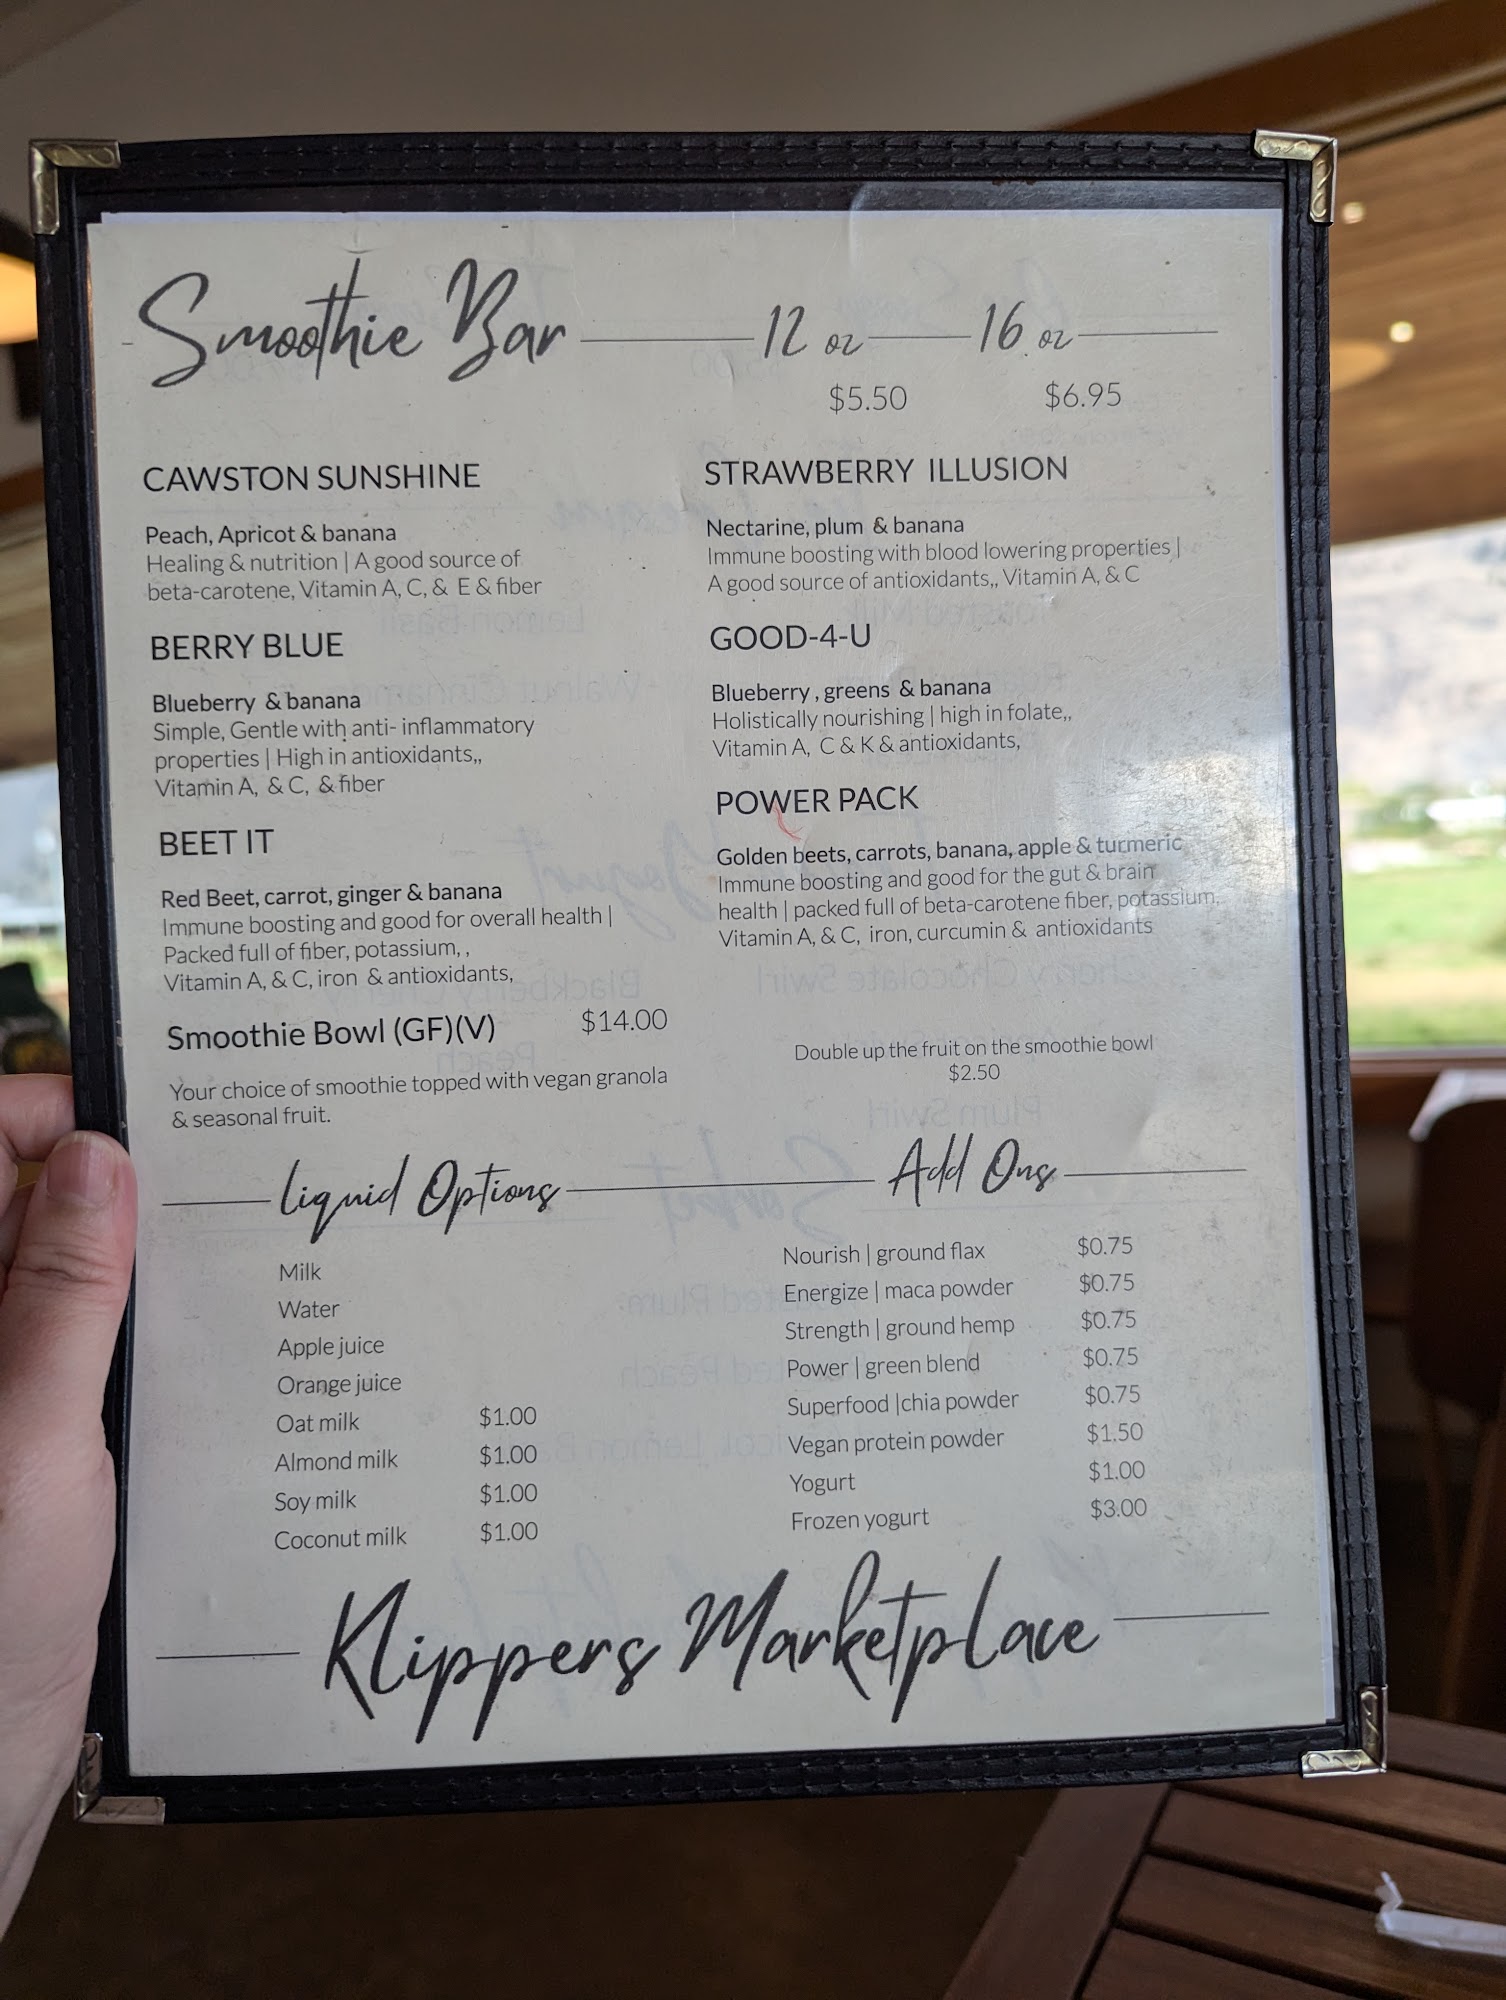 Smoothie Bar 12 oz 16 oz
$5.50 $6.95
CAWSTON SUNSHINE
Peach, Apricot & banana
Healing & nutrition | A good source of
beta-carotene, Vitamin A, C, & E & fiber
BERRY BLUE
Blueberry & banana
Simple, Gentle with anti- inflammatory
properties | High in antioxidants,,
Vitamin A, & C, & fiber
BEET IT
Red Beet, carrot, ginger & banana
Immune boosting and good for overall health |
Packed full of fiber, potassium, ,
Vitamin A, & C, iron & antioxidants,
Smoothie Bowl (GF)(V) $14.00
Your choice of smoothie topped with vegan granola
& seasonal fruit.
STRAWBERRY ILLUSION
Nectarine, plum & banana
Immune boosting with blood lowering properties |
A good source of antioxidants,, Vitamin A, & C
GOOD-4-U
Blueberry , greens & banana
Holistically nourishing | high in folate,,
Vitamin A, C & K & antioxidants,
POWER PACK
Golden beets, carrots, banana, apple & turmeric
Immune boosting and good for the gut & brain
health | packed full of beta-carotene fiber, potassium,
Vitamin A, & C, iron, curcumin & antioxidants
Double up the fruit on the smoothie bowl
$2.50
Liquid Options
Milk
Water
Apple juice
Orange juice
Oat milk $1.00
Almond milk $1.00
Soy milk $1.00
Coconut milk $1.00
Add Ons
Nourish | ground flax $0.75
Energize | maca powder $0.75
Strength | ground hemp $0.75
Power | green blend $0.75
Superfood |chia powder $0.75
Vegan protein powder $1.50
Yogurt $1.00
Frozen yogurt $3.00
Klippers Marketplace